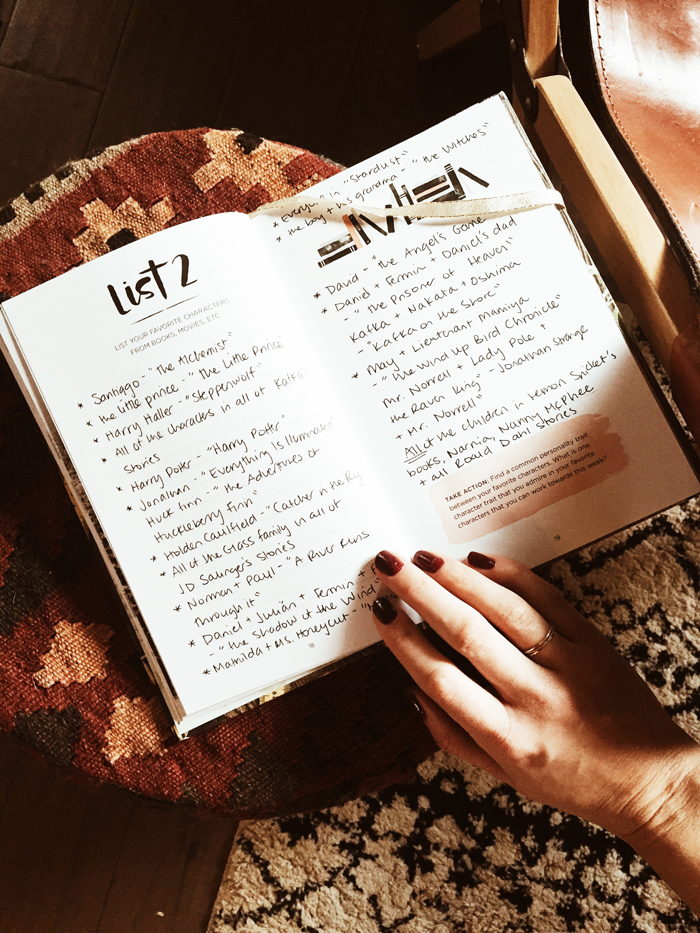 List 2
LIST YOUR FAVORITE CHARACTERS
FROM BOOKS, MOVIES, ETC.
* Santiago - "The Alchemist"
* the little prince - "The Little Prince
* Harry Haller - "Steppenwolf"
* All of the characters in all of Kafka
stories
* Harry Potter - "Harry Potter"
* Jonathan - "Everything Is Illuminated
Huck Finn - "the Adventures of
Huckleberry Finn"
* Holden Caulfield - "Catcher in the Ry
* All of the Glass family in all of
JD Salinger's stories
* Norman + Paul - "A River Runs
through it"
* Daniel + Julián + Fermin +
- "the Shadow of the Wind"
* Mathilda + Ms. Honeycut -
18
* Everyone in "Stardust"
* the boy + his grandma - "the Witches"
* David - "the Angel's Game"
* Daniel + Fermin + Daniel's dad
- "the Prisoner of Heaven"
Kafka + Nakata + Oshima
- "Kafka on the Shore"
* May + Lieutenant Mamiya
- "the Wind Up Bird Chronicle"
* Mr. Norrell + Lady Pole +
the Raven King - "Jonathan Strange
+ Mr. Norrell"
All of the children in Lemon Snicket's
books, Narnia, Nanny McPhee
+ all Roald Dahl stories
TAKE ACTION: Find a common personality trait
between your favorite characters. What is one
character trait that you admire in your favorite
characters that you can work towards this week?
19